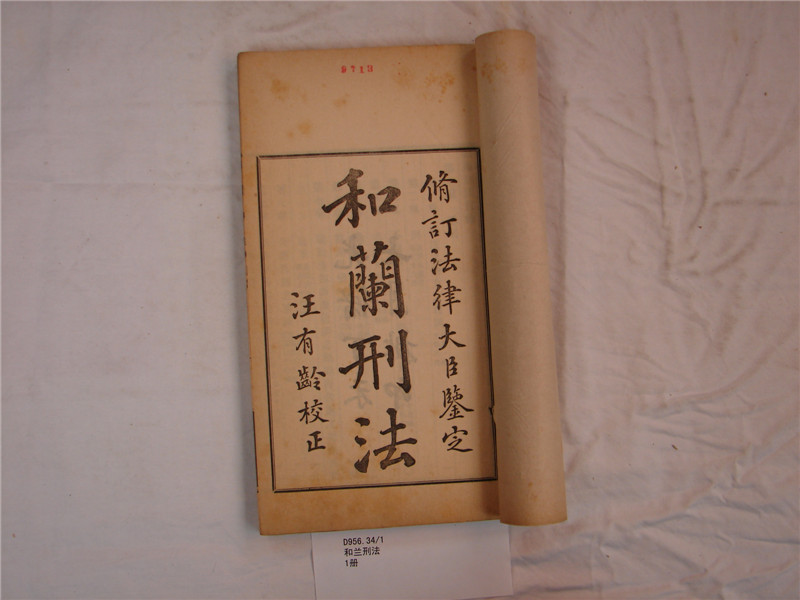 脩訂法律大臣鑒定
和蘭刑法
汪有齡校正
D956.34/1
和兰刑法
1册